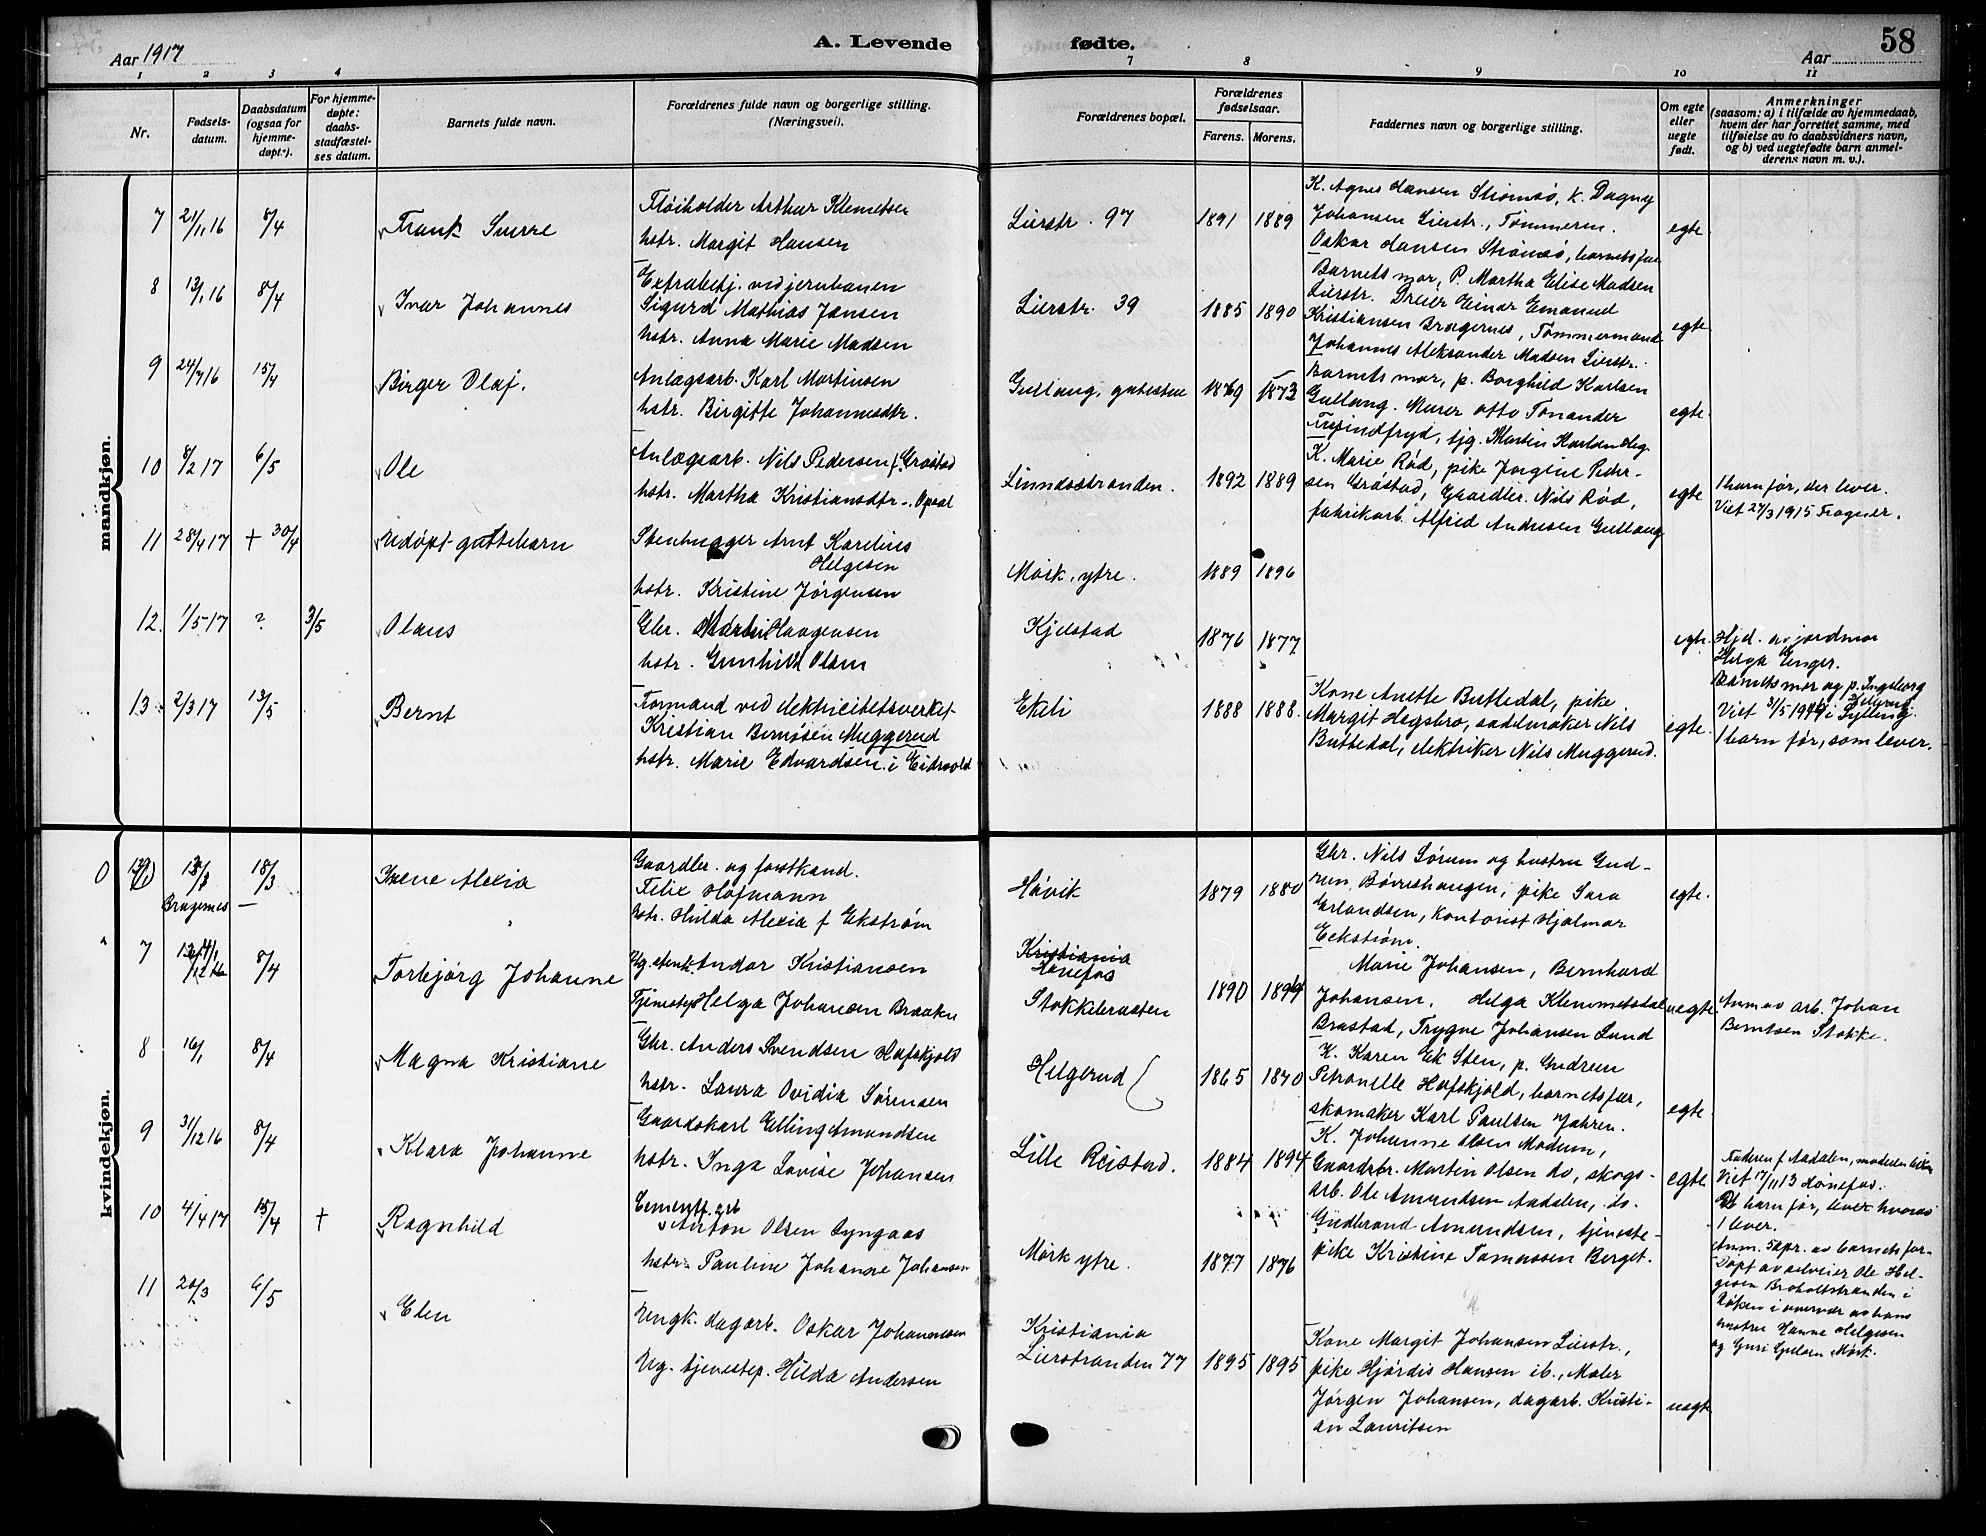 Aar 1917
A. Levende
fødte.
58
Aar
1 2 3 4 7 8 9 10 11
Nr.
Fødsels-
datum.
Daabsdatum
(ogsaa for
hjemme-
døpt.).
For hjemme-
døpte:
daabs-
stadfæstel-
ses datum.
Barnets fulde navn.
Forældrenes fulde navn og borgerlige stilling.
(Næringsvei).
Forældrenes bopæl.
Forældrenes
fødselsaar.
Farens. Morens.
Faddernes navn og borgerlige stilling.
Om egte
eller
uegte
født.
Anmerkninger
(saasom: a) i tilfælde av hjemmedaab,
hvem der har forrettet samme, med
tilføielse av to daabsvidners navn,
og b) ved uegtefødte barn anmel-
derens navn m. v.).
mandkjøn.
7 21/1 16 8/4 Frank Sverre
Fløiholder Arthur Klemetsen
hstr. Margit Hansen
Lierstr. 97 1891 1889
K. Agnes Hansen Strømsø, k. Dagny
Johansen Lierstr., Tømmerm.
Oskar Hansen Strømsø, barnets far
egte
8 13/1 16 8/4 Ivar Johannes
Extrabetj. ved jernbanen
Sigurd Mathias Jansen
hstr. Anna Marie Madsen
Lierstr. 39 1885 1890
Barnets mor, P. Martha Elise Madsen
Lierstr. Dreier Einar Emanuel
Kristiansen Bragernes, Tømmermand
Johannes Aleksander Madsen Lierstr.
egte
9 24/7 16 15/4 Birger Olaf.
Anlægsarb. Karl Martinsen
hstr. Birgitte Johannesdtr.
Gullaug, 1869 1873
Barnets mor, p. Borghild Karlsen
Gullaug. Murer Otto Tonander
tjg. Martin Karlsen
egte.
10 8/2 17 6/5 Ole
Anlægsarb. Nils Pedersen f. Grøstad
hstr. Martha Kristiansdtr. Opsal
Linnesstranden. 1892 1889
K. Marie Rød, pike Jørgine Peder-
sen Grøstad, Gaardbr. Nils Rød,
fabrikarb. Alfred Andresen Gullaug
egte
1 barn før, der lever.
Viet 27/3 1915 Frogner.
11 28/4 17 + 30/4 udøpt guttebarn
Stenhugger Arnt Karelius
Helgesen
hstr. Kristine Jørgensen
Mørk, ytre. 1889 1896
12. 1/5 17 ? 3/5 Olaus
Gbr. Haagensen
hstr. Gunhild Olsen
Kjelstad 1876 1877
egte.
Hjd. av jordmor
Helga Enger.
Barnets mor og p. Ingeborg
Helgerud
13 2/3 17 13/5 Bernt
Formand ved elektricitetsverket
Kristian Bernøsen Muggerud
hstr. Marie Edvardsen. i Eidsvold
Ekeli 1888 1888.
Kone Anette Buttedal, pike
Margit Hegsbro, sadelmaker Nils
Buttedal, elektriker Nils Muggerud.
egte.
Viet 31/5 i Sylling.
1 barn før, som lever.
kvindekjøn.
0 18/3 Irene Alexia
Bragernes
Gaardbr. og forstkand.
Felix Hofmann
hstr. Hilda Alexia f. Ekstrøm
Høvik 1879 1880
Gbr. Nils Sørum og hustru Gud-
run, Børreshaugen, pike Sara
Erlandsen, kontorist Hjalmar
Eckstrøm.
egte.
7 8/4 Torbjørg Johanne
Andor Kristiansen
Tjenestep. Helga Johansen Braaken
Kristiania
Hønefos
Stokkebraaten
1890 1894
Marie Johansen, Bernhard
Johansen. Helga Klemmetsdal
Brastad, Trygve Johansen Lund
uegte
Anm. av arb. Johan
Berntsen Stokke.
8 16/1 8/4 Magna Kristiane
Gbr. Anders Svendsen Hofskjold
hstr. Laura Ovidia Sørensen
Helgerud 1865 1870
K. Karen Ek Sten, p. Gudrun
Petronelle Hofskjold, barnets far,
skomaker Karl Paulsen Jahren.
egte
9 31/12 16 8/4 Klara Johanne
Gaardskarl Elling Amundsen
hstr. Inga Lovise Johansen
Lille Reistad. 1884 1894
K. Johanne Olsen Modum,
Gaardbr. Martin Olsen do, skogs-
arb. Ole Amundsen Aadalen, do.
Gudbrand Amundsen, tjeneste-
pike Kristine Tomassen Berget.
egte
Viet 17/11 13 Hønefos.
barn før, hvorav
1 lever.
10 4/4 17 15/4 + Ragnhild
Cementt. arb
Anton Olsen Lyngaas
hstr. Pauline Johanne Johansen
Mørk ytre. 1877 1876
Anm. 5 apr. av barnets far.
Døpt av selveier Ole Hel-
gesen Braholtstranden i
Røken i nærvær av hans
hustru Hanne Helgesen
og Guri Gulsen Mørk.
11 20/3 6/5 Elen
Ungk. dagarb. Oskar Johannesen
Ug. tjenestep. Hilda Andersen
Kristiania
Lierstranden 77 1895 1895
Kone Margit Johansen Lierstr.,
pike Hjørdis Hansen ib., Maler
Jørgen Johansen, dagarb. Kristi-
an Lauritsen
uegte